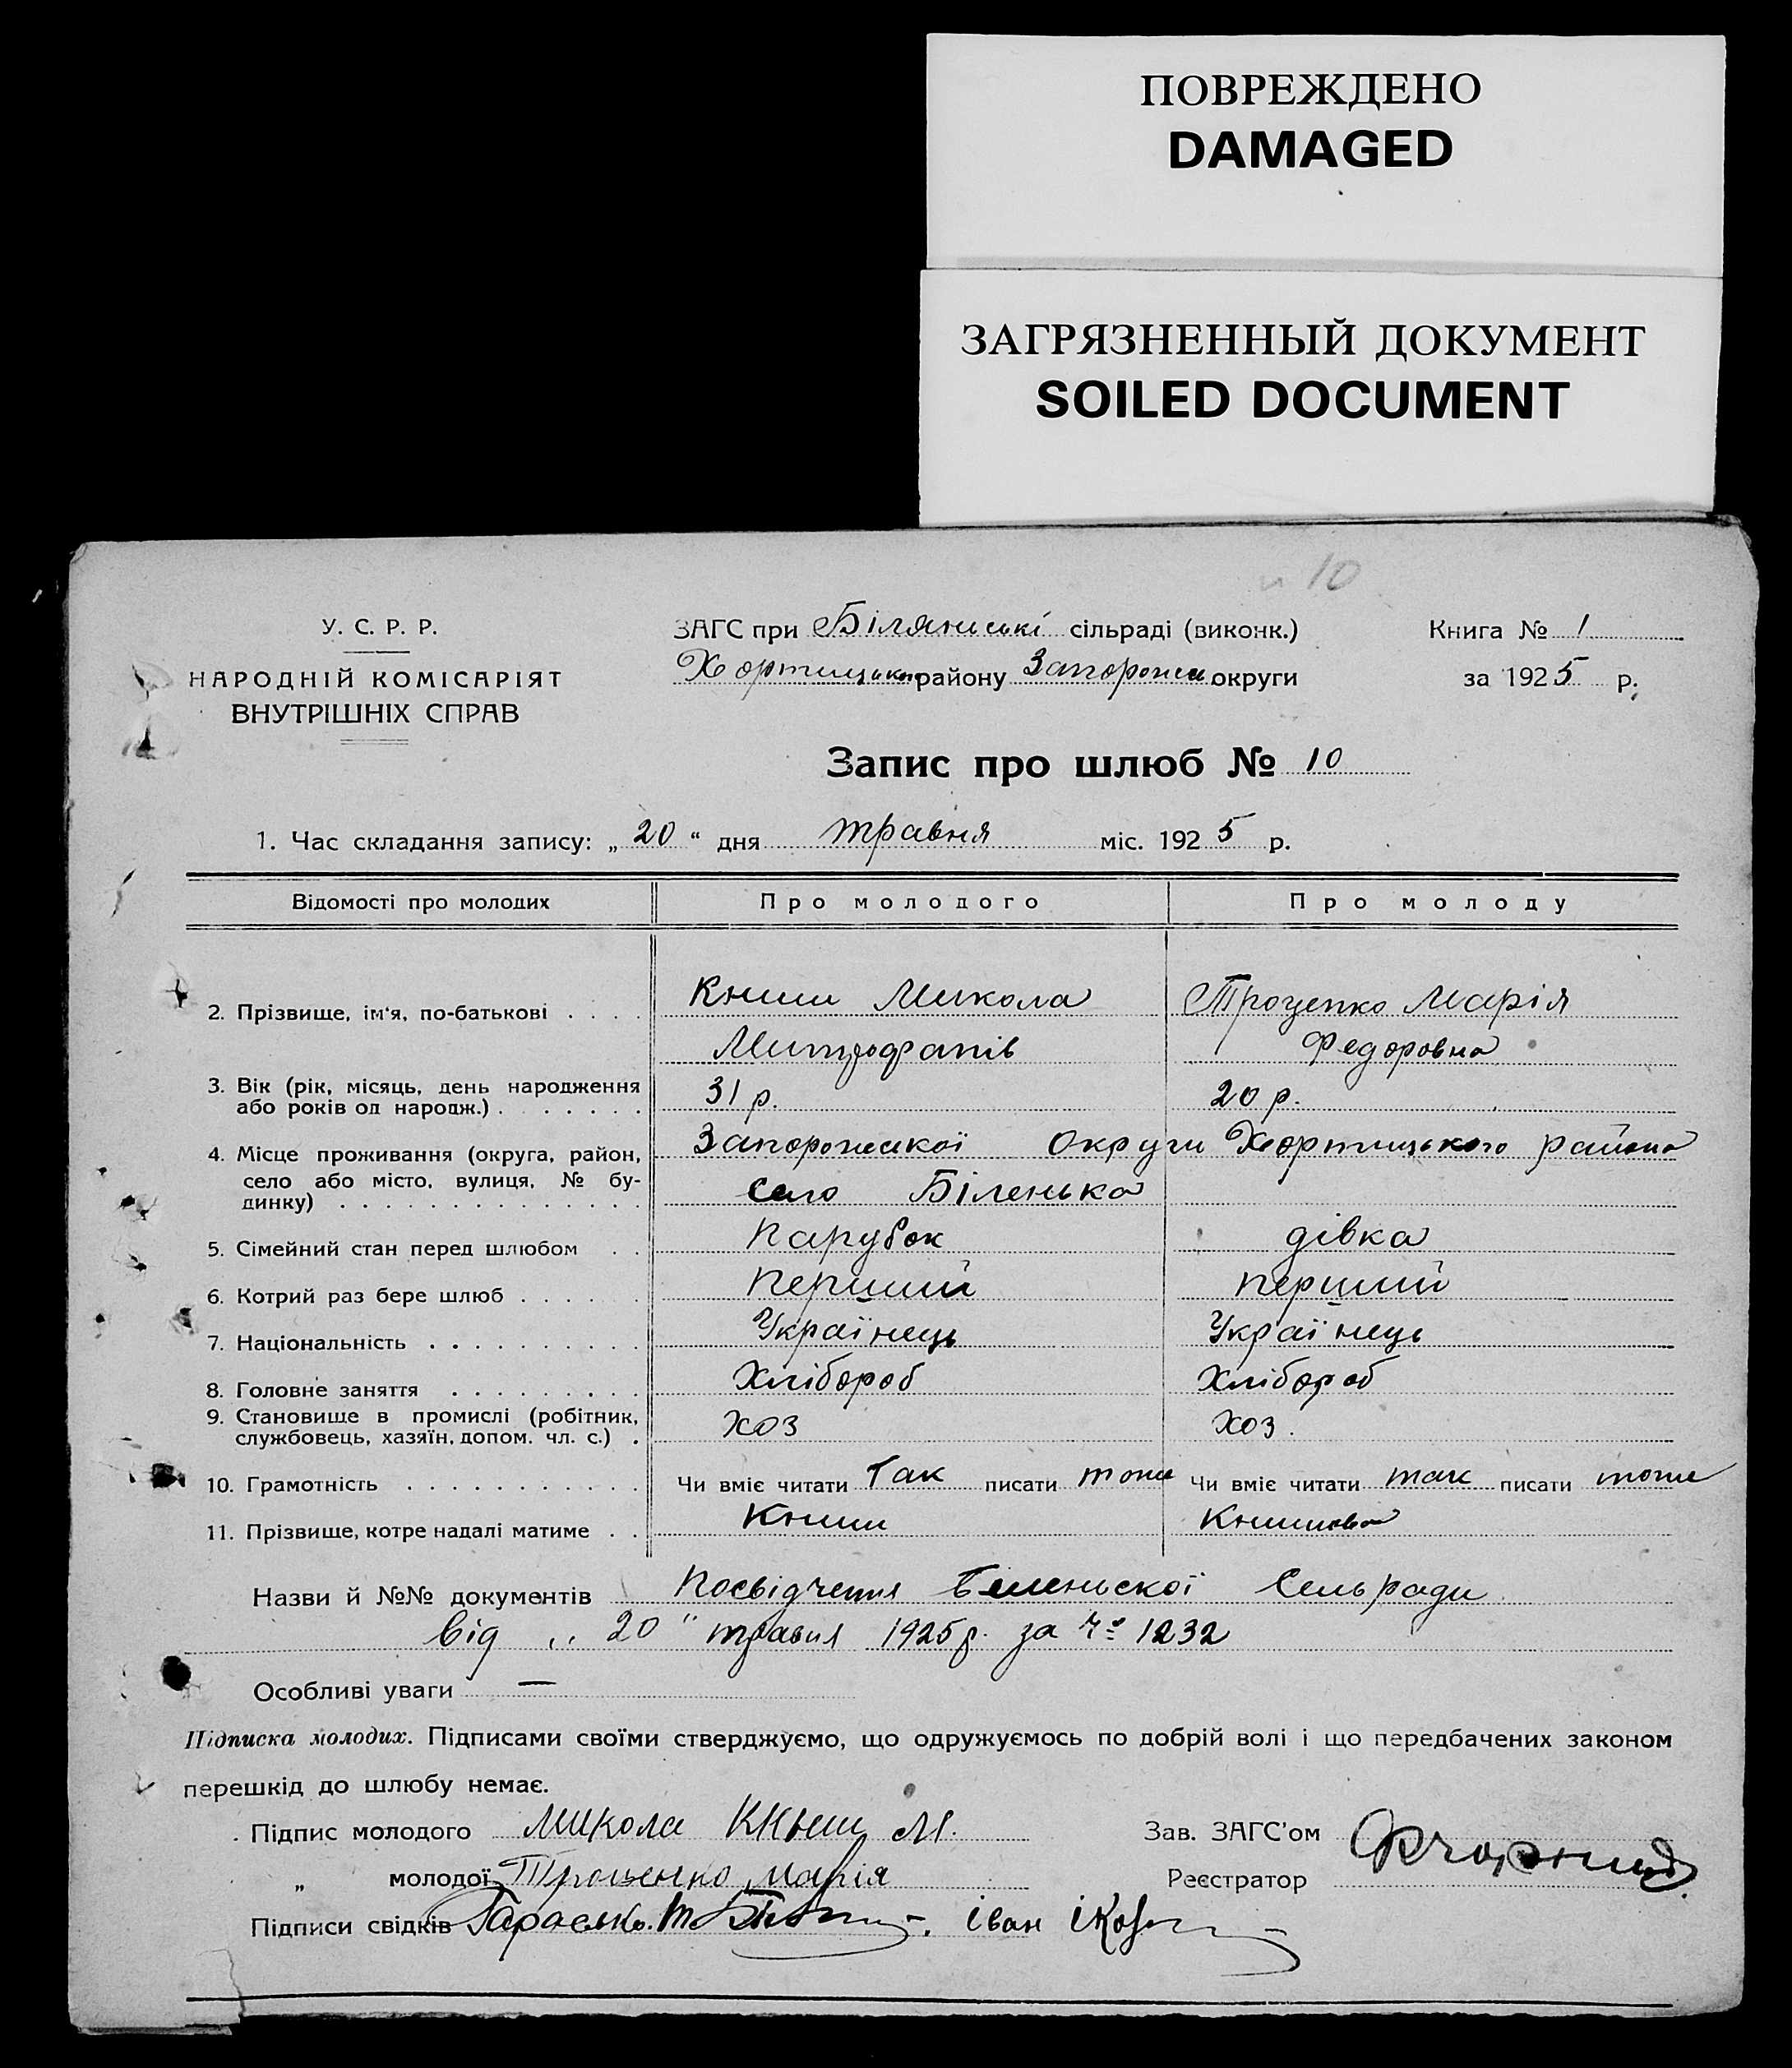 ПОВРЕЖДЕНО
DAMAGED
ЗАГРЯЗНЕННЫЙ ДОКУМЕНТ
SOILED DOCUMENT
10
У. С. Р. Р.
НАРОДНІЙ КОМІСАРІЯТ
ВНУТРІШНІХ СПРАВ
ЗАГС при Біляниські сільраді (виконк.)
Хортицьком району Запорожск округи
Книга № 1
за 1925 р.
Запис про шлюб № 10
1. Час складання запису: „ 20 “ дня травня міс. 1925 р.
Відомості про молодих Про молодого Про молоду
2. Прізвище, ім‘я, по-батькові . . . . Книш Микола Троценко Марія
Митрофанів Федоровна
3. Вік (рік, місяць, день народження
або років од народж.) . . . . . . . 31 р. 20 р.
4. Місце проживання (округа, район, Запорожскої Округи Хортицького района
село або місто, вулиця, № бу-
динку) . . . . . . . . . . . . . . село Біленька
5. Сімейний стан перед шлюбом . . Парубок дівка
6. Котрий раз бере шлюб . . . . . . Перший перший
7. Національність . . . . . . . . . . Українець Українець
8. Головне заняття . . . . . . . . . Хлібороб Хлібороб
9. Становище в промислі (робітник,
службовець, хазяїн, допом. чл. с.) . Хоз Хоз.
10. Грамотність . . . . . . . . . . . Чи вміє читати Так писати тоже Чи вміє читати так писати тоже
11. Прізвище, котре надалі матиме . . Книш Книшова
Назви й №№ документів Посвідчення Біленьскої Сельради
від „ 20 " травня 1925 р. за № 1232
Особливі уваги —
Підписка молодих. Підписами своїми стверджуємо, що одружуємось по добрій волі і що передбачених законом
перешкід до шлюбу немає.
Підпис молодого Микола ККныш М. Зав. ЗАГС’ом
„ молодої Троценко Марія Реєстратор
Підписи свідків Іван